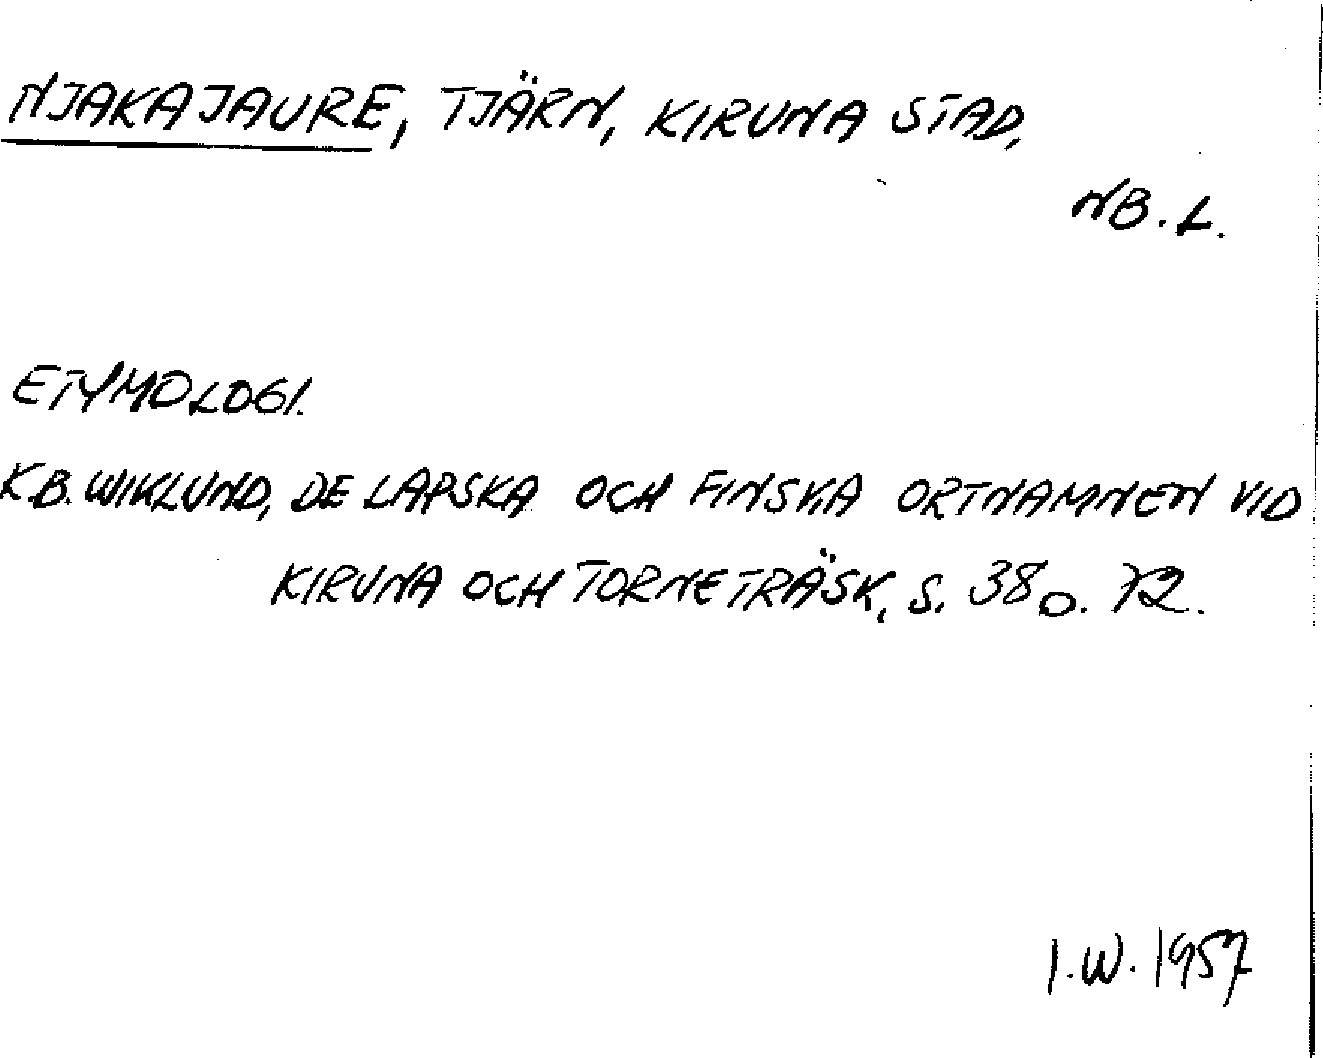 NJAKAJAURE, TJÄRN, KIRUNA STAD,
NB. L.
ETYMOLOGI.
K.B. WIKLUND, DE LAPSKA OCH FINSKA ORTNAMNEN VID
KIRUNA OCH TORNETRÄSK, S. 38 O. 72.
I.W. 1957